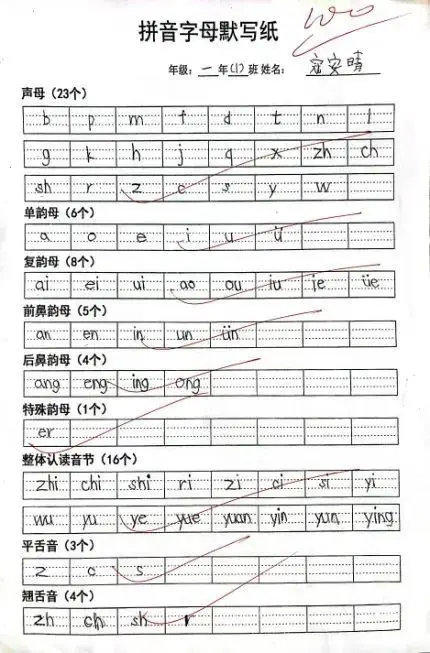 100
拼音字母默写纸
年级：一年(1)班 姓名：安晴
声母（23个）
b p m f d t n l
g k h j q x zh ch
sh r z c s y w
单韵母（6个）
a o e i u ü
复韵母（8个）
ai ei ui ao ou iu ie üe
前鼻韵母（5个）
an en in un ün
后鼻韵母（4个）
ang eng ing ong
特殊韵母（1个）
er
整体认读音节（16个）
zhi chi shi ri zi ci si yi
wu yu ye yue yuan yin yun ying
平舌音（3个）
z c s
翘舌音（4个）
zh ch sh r